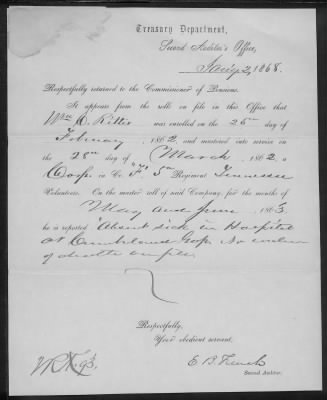 Treasury Department,
Second Auditor's Office,
Jan'y 2, 1868.
Respectfully returned to the Commissioner of Pensions.
It appears from the rolls on file in this Office that
Wm C. Ritter was enrolled on the 25th day of
February, 1862, and mustered into service on
the 28th day of March, 1862, a
Corp. in Co. "F" 5th Regiment Tennessee
Volunteers. On the muster roll of said Company, for the months of
May and June, 1863,
he is reported "Absent sick in Hospital
at Cumberland Gap. No evidence
of death on file.
Respectfully,
Your obedient servant,
E B French
Second Auditor.